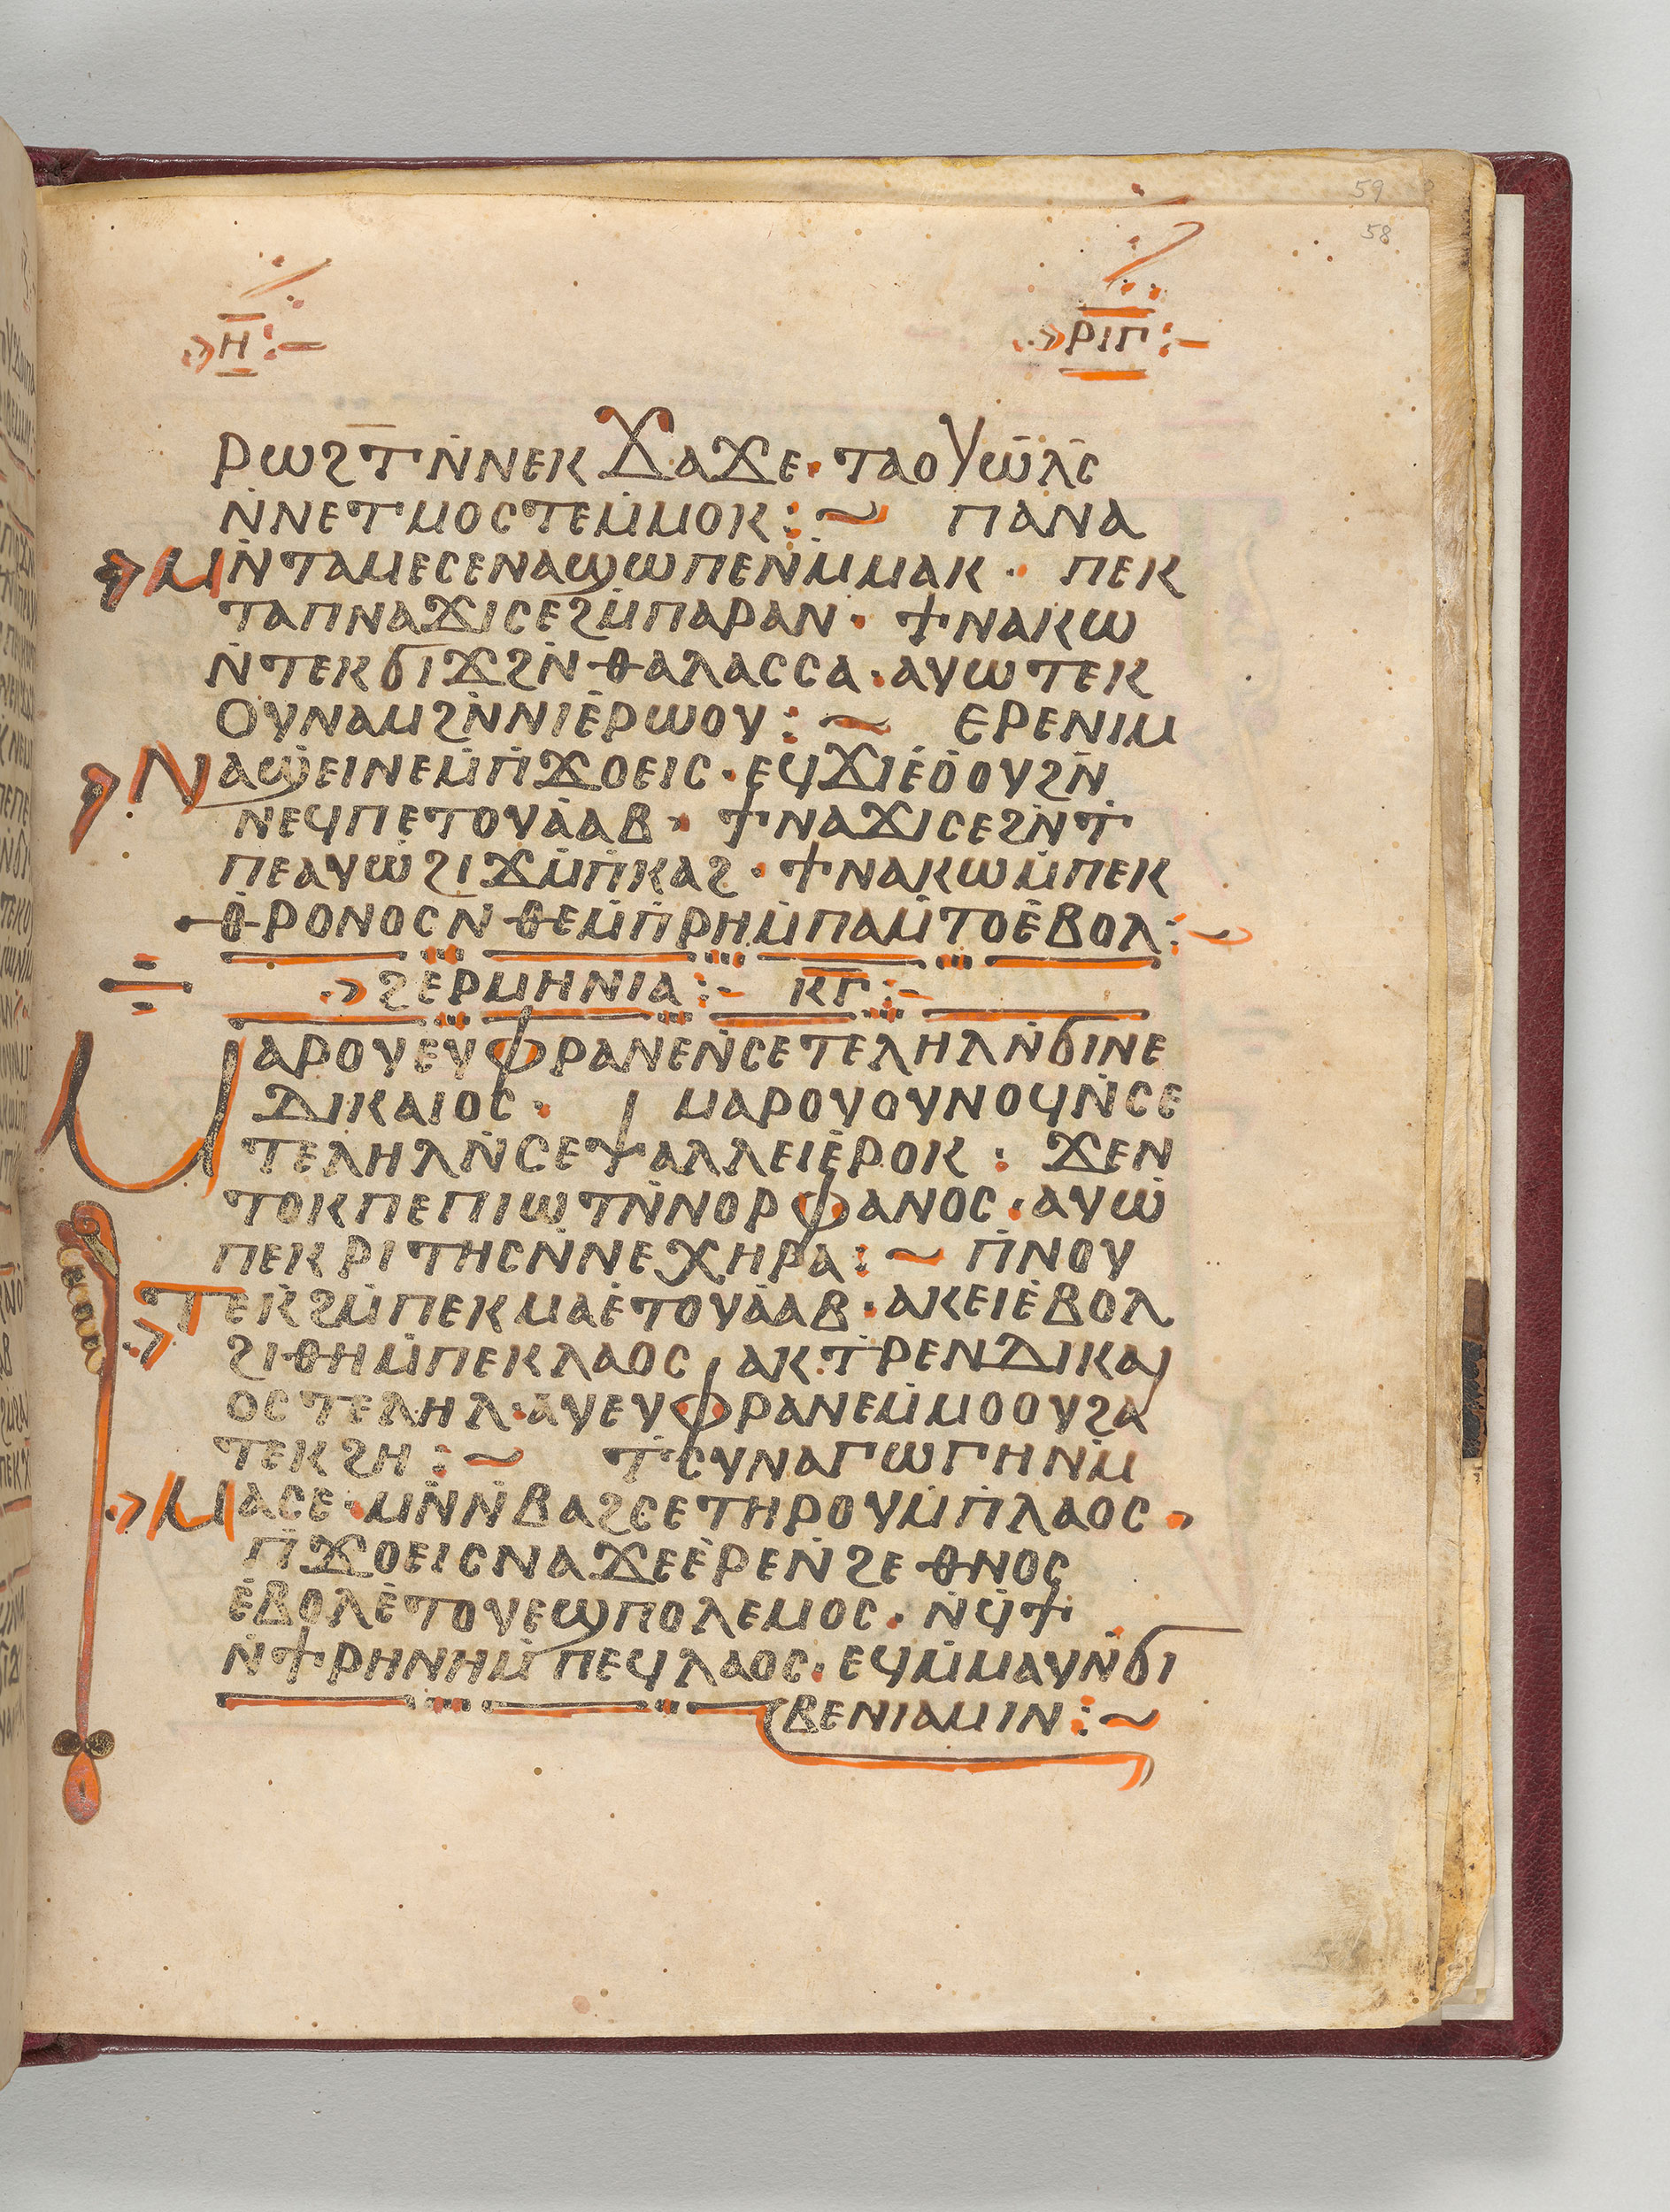 59
58
ⲏ̅ ⲣⲓⲡ
ⲣⲱϩⲧ̅ⲛ̇ⲛⲉⲕϫⲁϫⲉ· ⲧⲁⲟⲩⲱ̅ⲗⲥ̅
ⲛ̇ⲛⲉⲧⲙⲟⲥⲧⲉⲙ̇ⲙⲟⲕ:~ ⲡⲁⲛⲁ
ⲙⲛ̇ⲧⲁⲙⲉⲥⲉⲛⲁϣⲱⲡⲉⲛⲙ̇ⲙⲁⲕ· ⲡⲉⲕ
ⲧⲁⲡⲛⲁϫⲓⲥⲉϩⲙ̇ⲡⲁⲣⲁⲛ· ϯⲛⲁⲕⲱ
ⲛ̇ⲧⲉⲕϭⲓϫϩⲛ̇ⲑⲁⲗⲁⲥⲥⲁ· ⲁⲩⲱⲧⲉⲕ
ⲟⲩⲛⲁⲙϩⲛ̇ⲛⲓⲉ̇ⲣⲱⲟⲩ:~ ⲉⲣⲉⲛⲓⲙ
ⲛⲁϣⲉⲓⲛⲉⲙ̇ⲡ̇ϫⲟⲉⲓⲥ· ⲉϥϫⲓⲉ̇ⲟ̇ⲟⲩϩⲛ̇
ⲛⲉϥⲡⲉⲧⲟⲩⲁ̇ⲁⲃ· ϯⲛⲁϫⲓⲥⲉϩⲛ̇ⲧ̇
ⲡⲉⲁⲩⲱ̇ϩⲓϫⲙ̇ⲡ̇ⲕⲁϩ· ϯⲛⲁⲕⲱⲙ̇ⲡⲉⲕ
ⲑⲣⲟⲛⲟⲥⲛ̇ⲑⲉⲙ̇ⲡ̇ⲣⲏⲙ̇ⲡⲁⲙ̇ⲧⲟⲉ̇ⲃⲟⲗ:~
ϩⲉ̇ⲣⲙⲏⲛⲓⲁ:- ⲕ̅ⲅ̅:-
ⲙⲁⲣⲟⲩⲉⲩⲫⲣⲁⲛⲉⲛ̇ⲥⲉⲧⲉⲗⲏⲗⲛ̇ϭⲓⲛⲉ
ⲇⲓⲕⲁⲓⲟⲥ· ⲙⲁⲣⲟⲩⲟⲩⲛⲟϥⲛ̇ⲥⲉ
ⲧⲉⲗⲏⲗⲛ̇ⲥⲉⲯⲁⲗⲗⲉⲓⲉ̇ⲣⲟⲕ: ϫⲉⲛ
ⲧⲟⲕⲡⲉⲡⲓⲱⲧⲛ̇ⲛⲟⲣⲫⲁⲛⲟⲥ· ⲁⲩⲱ̇
ⲡⲉⲕⲣⲓⲧⲏⲥⲛ̇ⲛⲉⲭⲏⲣⲁ:~ ⲡ̇ⲛⲟⲩ
ⲧⲉⲕ̇ϩⲙ̇ⲡⲉⲕⲙⲁⲉ̇ⲧⲟⲩⲁ̇ⲁⲃ· ⲁⲕⲉⲓⲉ̇ⲃⲟⲗ
ϩⲓⲑⲏⲙ̇ⲡⲉⲕⲗⲁⲟⲥ ⲁⲕⲧ̇ⲣⲉⲛⲇⲓⲕⲁⲓ
ⲟⲥⲧⲉⲗⲏⲗ· ⲁⲩⲉⲩⲫⲣⲁⲛⲉⲙ̇ⲙⲟⲟⲩϩⲁ
ⲧⲉⲕϩⲏ:~ ⲧ̇ⲥⲩⲛⲁⲅⲱⲅⲏⲛⲙ̇
ⲙⲁⲥⲉ· ⲙⲛ̇ⲛ̇ⲃⲁϩⲥⲉⲧⲏⲣⲟⲩⲙ̇ⲡ̇ⲗⲁⲟⲥ·
ⲡ̇ϫⲟⲉⲓⲥⲛⲁϫⲉⲉ̇ⲣⲉⲛ̇ϩⲉⲑⲛⲟⲥ
ⲉ̇ⲃⲟⲗⲉ̇ⲧⲟⲩⲉϣⲡⲟⲗⲉⲙⲟⲥ· ⲛ̇ϥϯ
ⲛ̇ϯⲣⲏⲛⲏⲙ̇ⲡⲉϥⲗⲁⲟⲥ· ⲉϥⲙ̇ⲙⲁⲩⲛ̇ϭⲓ
ⲃⲉⲛⲓⲁⲙⲓⲛ:~